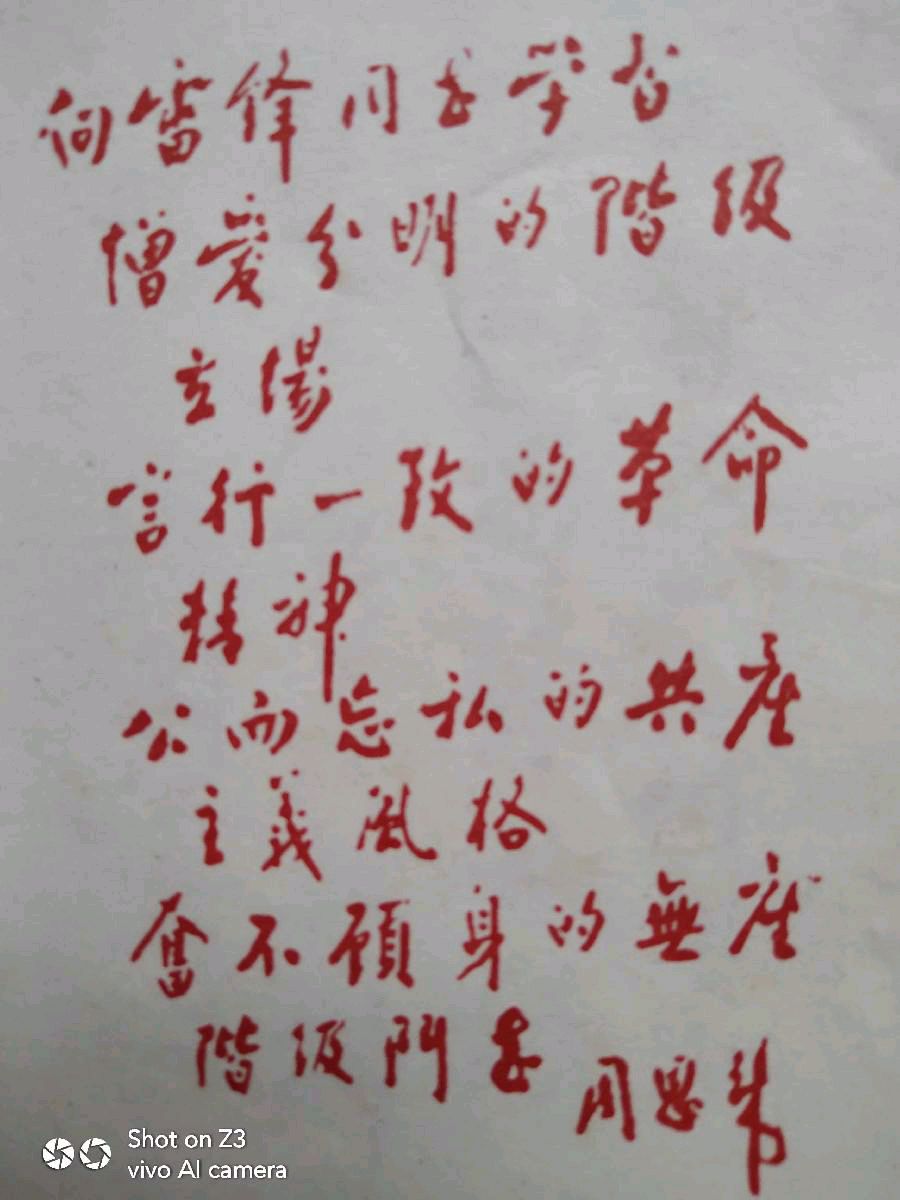 向雷锋同志学习
憎爱分明的階級
立場
言行一致的革命
精神
公而忘私的共产
主義風格
奮不顧身的無产
階级鬥志
周恩来
Shot on Z3
vivo AI camera